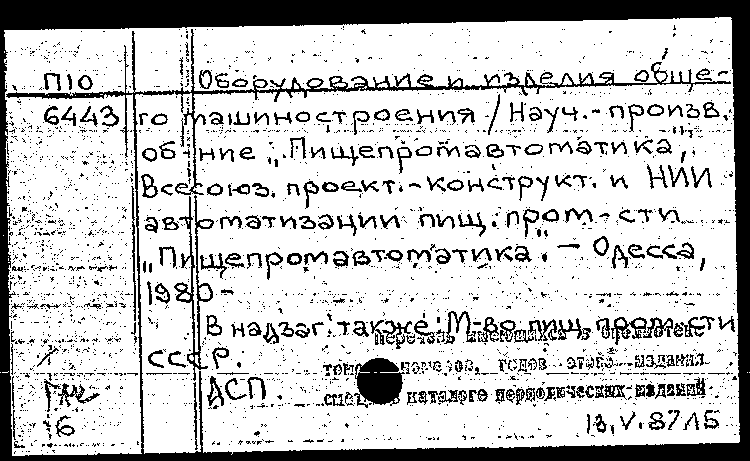 П10 Оборудование и изделия обще-
6443 го машиностроения / Науч.-произв.
об-ние "Пищепромавтоматика",
Всесоюз. проект.-конструкт. и НИИ
автоматизации пищ. пром-сти
"Пищепромавтоматика". — Одесса,
1980-
В надзаг. также: М-во пищ. пром-сти
перечень имеющихся в библиотеке
СССР.
томов, номеров, годов этого издания
ДСП.
смотри в каталоге периодических изданий
6 13.V.87